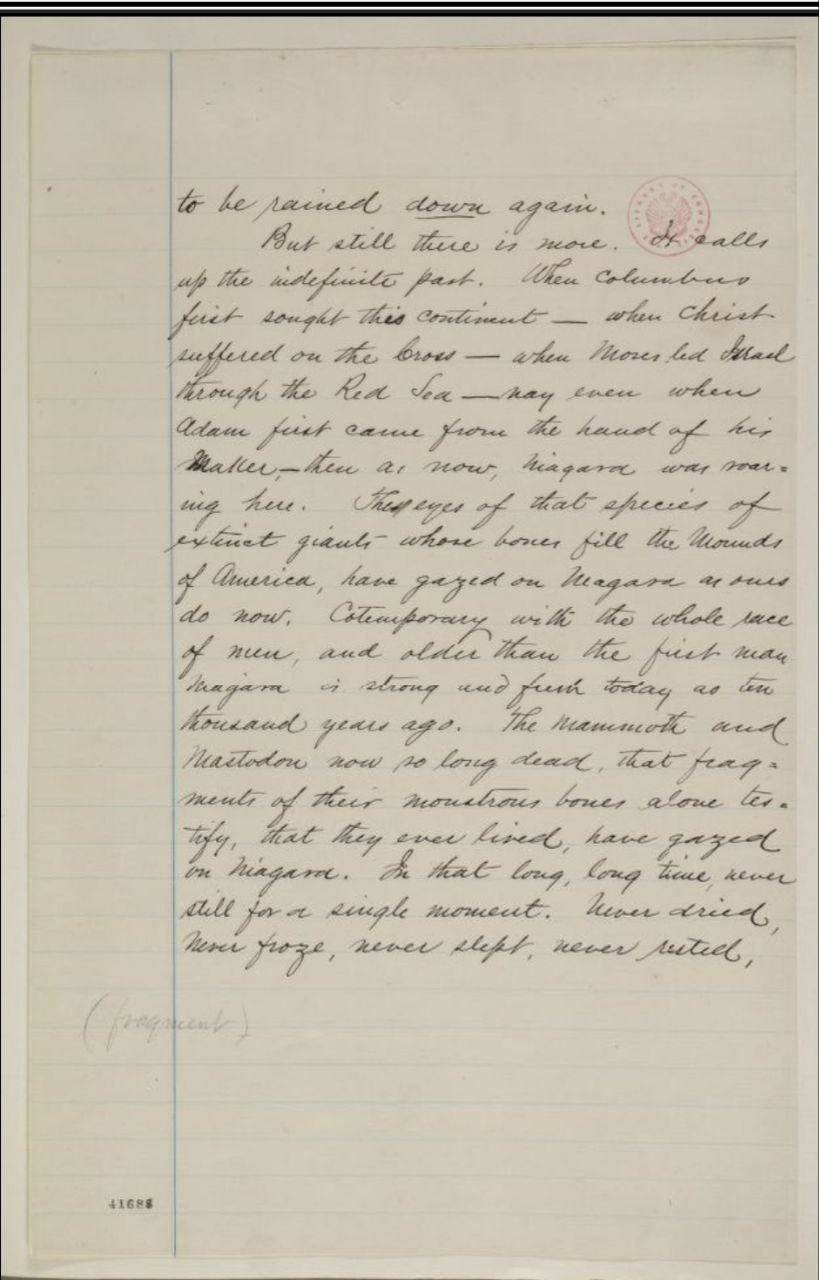 to be rained down again.
But still there is more. It calls
up the indefinite past. When Columbus
first sought this continent — when Christ
suffered on the Cross — when Moses led Israel
through the Red Sea — nay even when
Adam first came from the hand of his
Maker, — then as now, Niagara was roar=
ing here. The eyes of that species of
extinct giants whose bones fill the Mounds
of America, have gazed on Niagara as ours
do now. Cotemporary with the whole race
of men, and older than the first man
Niagara is strong and fresh today as ten
thousand years ago. The Mammoth and
Mastodon now so long dead, that frag=
ments of their monstrous bones alone tes=
tify, that they ever lived, have gazed
on Niagara. In that long, long time, never
still for a single moment. Never dried,
Never froze, never slept, never rested,
(fragment)